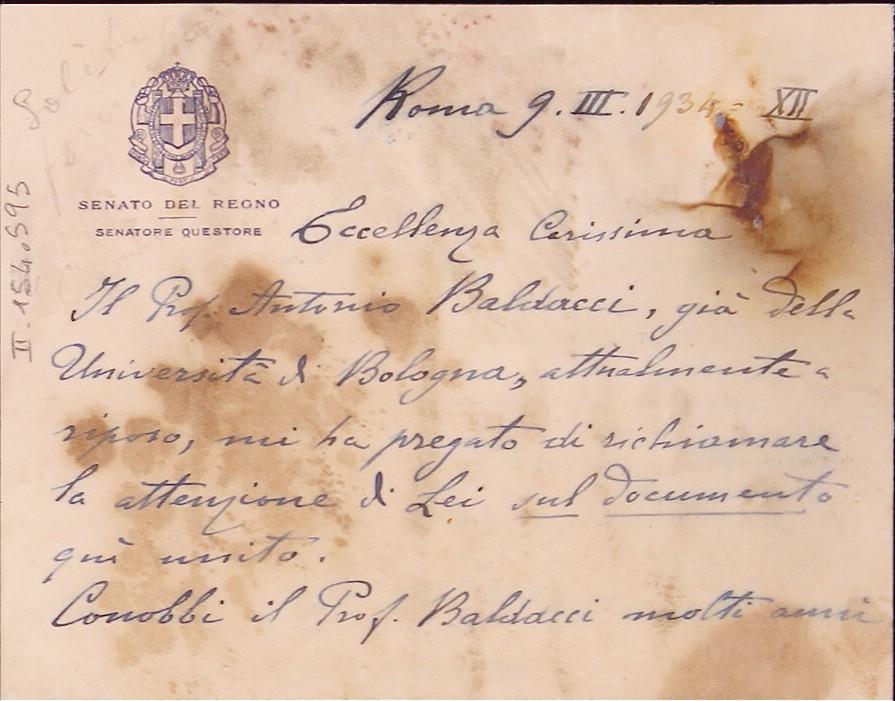 Roma 9. III. 1934 - XII
SENATO DEL REGNO
SENATORE QUESTORE
Eccellenza Carissima
Il Prof. Antonio Baldacci, già della
Università di Bologna, attualmente a
riposo, mi ha pregato di richiamare
la attenzione di Lei sul documento
quì unito.
Conobbi il Prof. Baldacci molti anni
II. 1540595